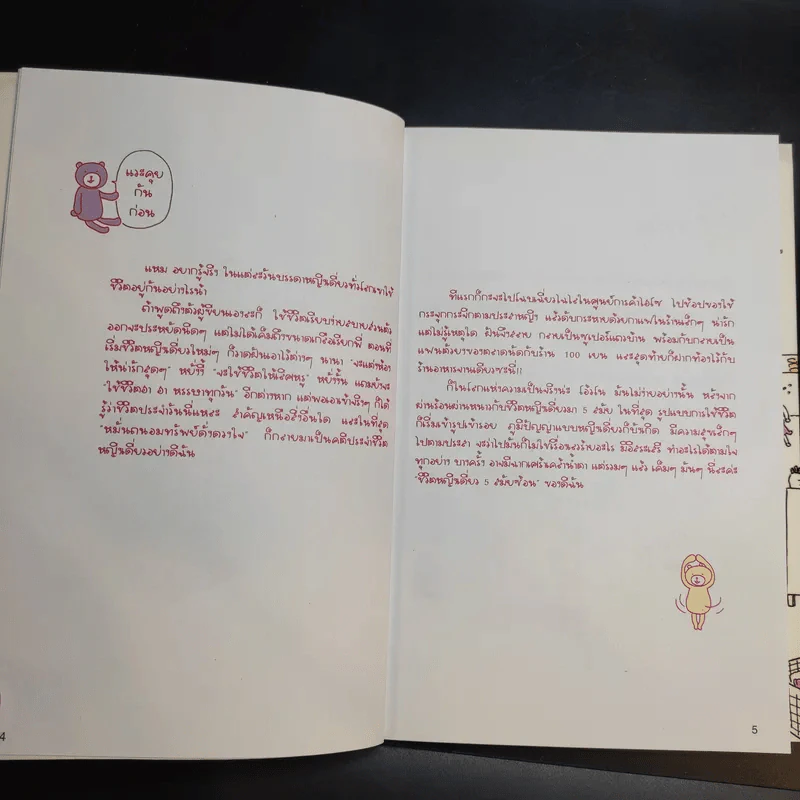 แวะคุย
กัน
ก่อน
แหม อยากรู้จริงๆ ในแต่ละวันบรรดาหญิงเดี่ยวทั่วโลกเขาใช้
ชีวิตอยู่กันอย่างไรน้า
ถ้าพูดถึงตัวผู้เขียนเองละก็ ใช้ชีวิตเรียบง่ายสบายส่วนตัว
ออกจะประหยัดนิดๆ แต่ไม่ได้เค็มถึงขนาดเกลือเรียกพี่ ตอนที่
เริ่มชีวิตหญิงเดี่ยวใหม่ๆ ก็วาดฝันเอาไว้ต่างๆ นานา "จะแต่งห้อง
ให้น่ารักสุดๆ" หยั่งงี้ "จะใช้ชีวิตให้เริ่ดหรู" หยั่งงั้น แถมยังจะ
"ใช้ชีวิตฮา ฮา หรรษาทุกวัน" อีกต่างหาก แต่พอเอาเข้าจริงๆ ก็ได้
รู้ว่าชีวิตประจำวันนี่แหละ สำคัญเหนือสิ่งอื่นใด และในที่สุด
"หมั่นถนอมทรัพย์ดั่งดวงใจ" ก็กลายมาเป็นคติประจำชีวิต
หญิงเดี่ยวอย่างดีฉัน
4
ทีแรกก็กะจะไปโฉบเฉี่ยวไฉไลในศูนย์การค้าไฮโซ ไปช้อปของใช้
กระจุกกระจิกตามประสาหญิงๆ แล้วดับกระหายด้วยกาแฟในร้านเล็กๆ น่ารัก
แต่ไม่รู้เหตุใด ฝันจึงสลาย กลายเป็นซูเปอร์แถวบ้าน พร้อมกับกลายเป็น
แฟนตัวยงของตลาดนัดกับร้าน 100 เยน และสุดท้ายก็ฝากท้องไว้กับ
ร้านอาหารจานเดียวซะงี้!!
ก็ในโลกแห่งความเป็นจริงน่ะ โอ้วโน มันไม่ง่ายอย่างนั้น หลังจาก
ผ่านร้อนผ่านหนาวกับชีวิตหญิงเดี่ยวมา 5 สมัย ในที่สุด รูปแบบการใช้ชีวิต
ก็เริ่มเข้ารูปเข้ารอย ภูมิปัญญาแบบหญิงเดี่ยวก็บังเกิด มีความสุขเล็กๆ
ไปตามประสา จะว่าไปมันก็ไม่ใช่เรื่องเลวร้ายอะไร มีอิสระเสรี ทำอะไรได้ตามใจ
ทุกอย่าง บางครั้ง อาจมีฉากเศร้าเคล้าน้ำตา แต่รวมๆ แล้ว เค็มๆ มันๆ นี่ละค่ะ
"ชีวิตหญิงเดี่ยว 5 สมัยซ้อน" ของดีฉัน
5